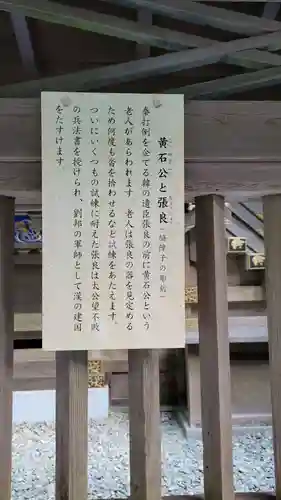 黄石公と張良 ―脇障子の彫刻―
秦打倒を企てる韓の遺臣張良の前に黄石公という
老人があらわれます 老人は張良の器を見定める
ため何度も沓を拾わせるなど試練をあたえます。
ついにいくつもの試練に耐えた張良は太公望不敗
の兵法書を授けられ、劉邦の軍師として漢の建国
をたすけます。